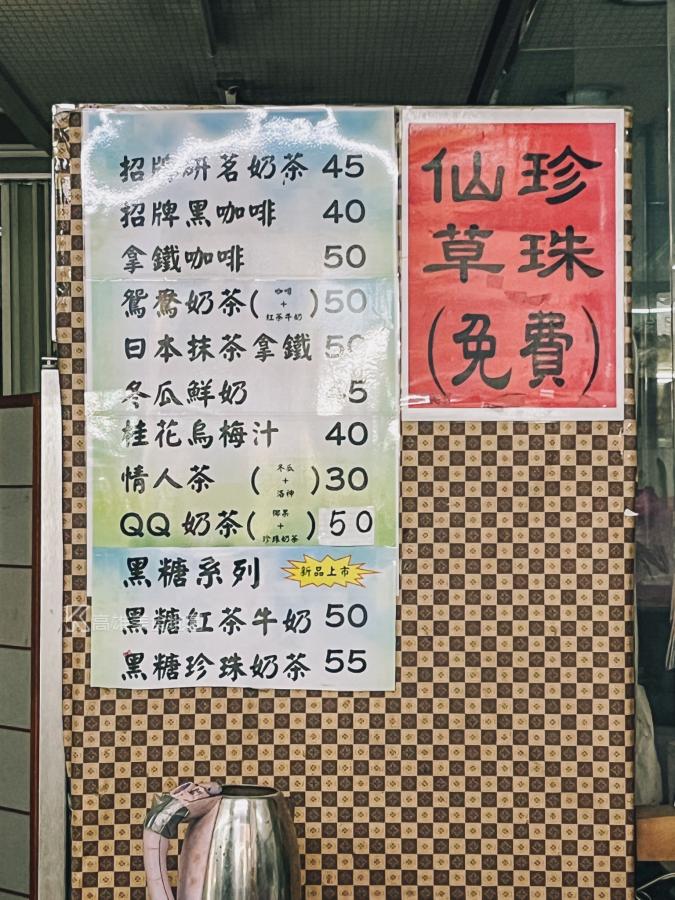 招牌研茗奶茶 45
招牌黑咖啡 40
拿鐵咖啡 50
鴛鴦奶茶(咖啡+紅茶牛奶)50
日本抹茶拿鐵 50
冬瓜鮮奶 5
桂花烏梅汁 40
情人茶 (冬瓜+洛神)30
QQ 奶茶(椰果+珍珠奶茶)50
黑糖系列 新品上市
黑糖紅茶牛奶 50
黑糖珍珠奶茶 55
珍珠
仙草
(免費)
高雄